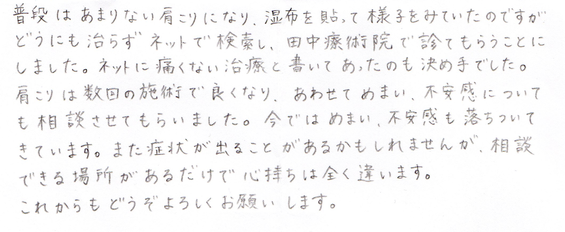 普段はあまりない肩こりになり、湿布を貼って様子をみていたのですが
どうにも治らずネットで検索し、田中療術院で診てもらうことに
しました。ネットに痛くない治療と書いてあったのも決め手でした。
肩こりは数回の施術で良くなり、あわせてめまい、不安感について
も相談させてもらいました。今ではめまい、不安感も落ちついて
きています。また症状が出ることがあるかもしれませんが、相談
できる場所があるだけで心持ちは全く違います。
これからもどうぞよろしくお願いします。